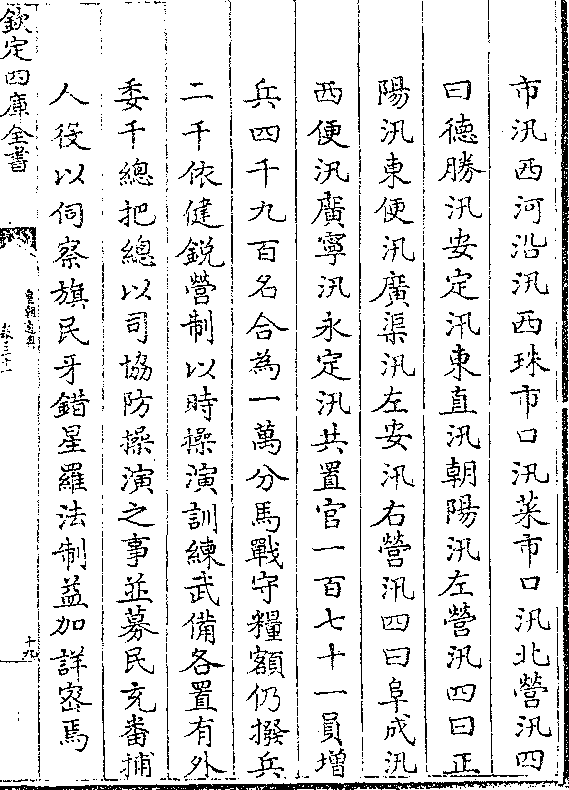 市汛西河沿汛西珠市口汛菜市口汛北營汛四
曰德勝汛安定汛東直汛朝陽汛左營汛四曰正
陽汛東便汛廣渠汛左安汛右營汛四曰阜成汛
西便汛廣寧汛永定汛共置官一百七十一員增
兵四千九百名合為一萬分馬戰守糧額仍撥兵
二千依健鋭營制以時操演訓練武備各置有外
委千總把總以司協防操演之事並募民充番捕
人役以伺察旗民牙錯星羅法制益加詳密焉
欽定四庫全書
皇朝通典
卷三十一
十九